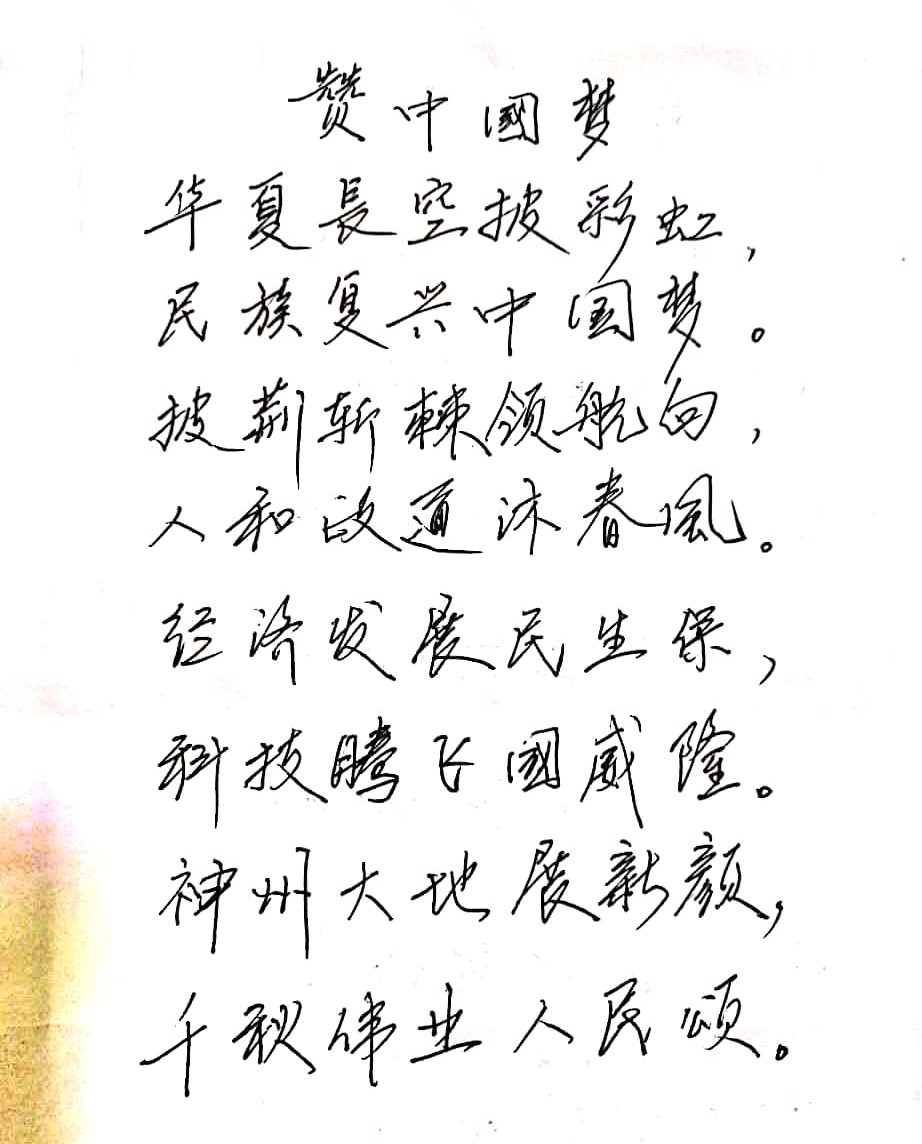 赞中國梦
华夏長空披彩虹，
民族复兴中国梦。
披荆斩棘领航向，
人和政通沐春风。
经济发展民生保，
科技腾飞國威隆。
神州大地展新颜，
千秋伟业人民颂。